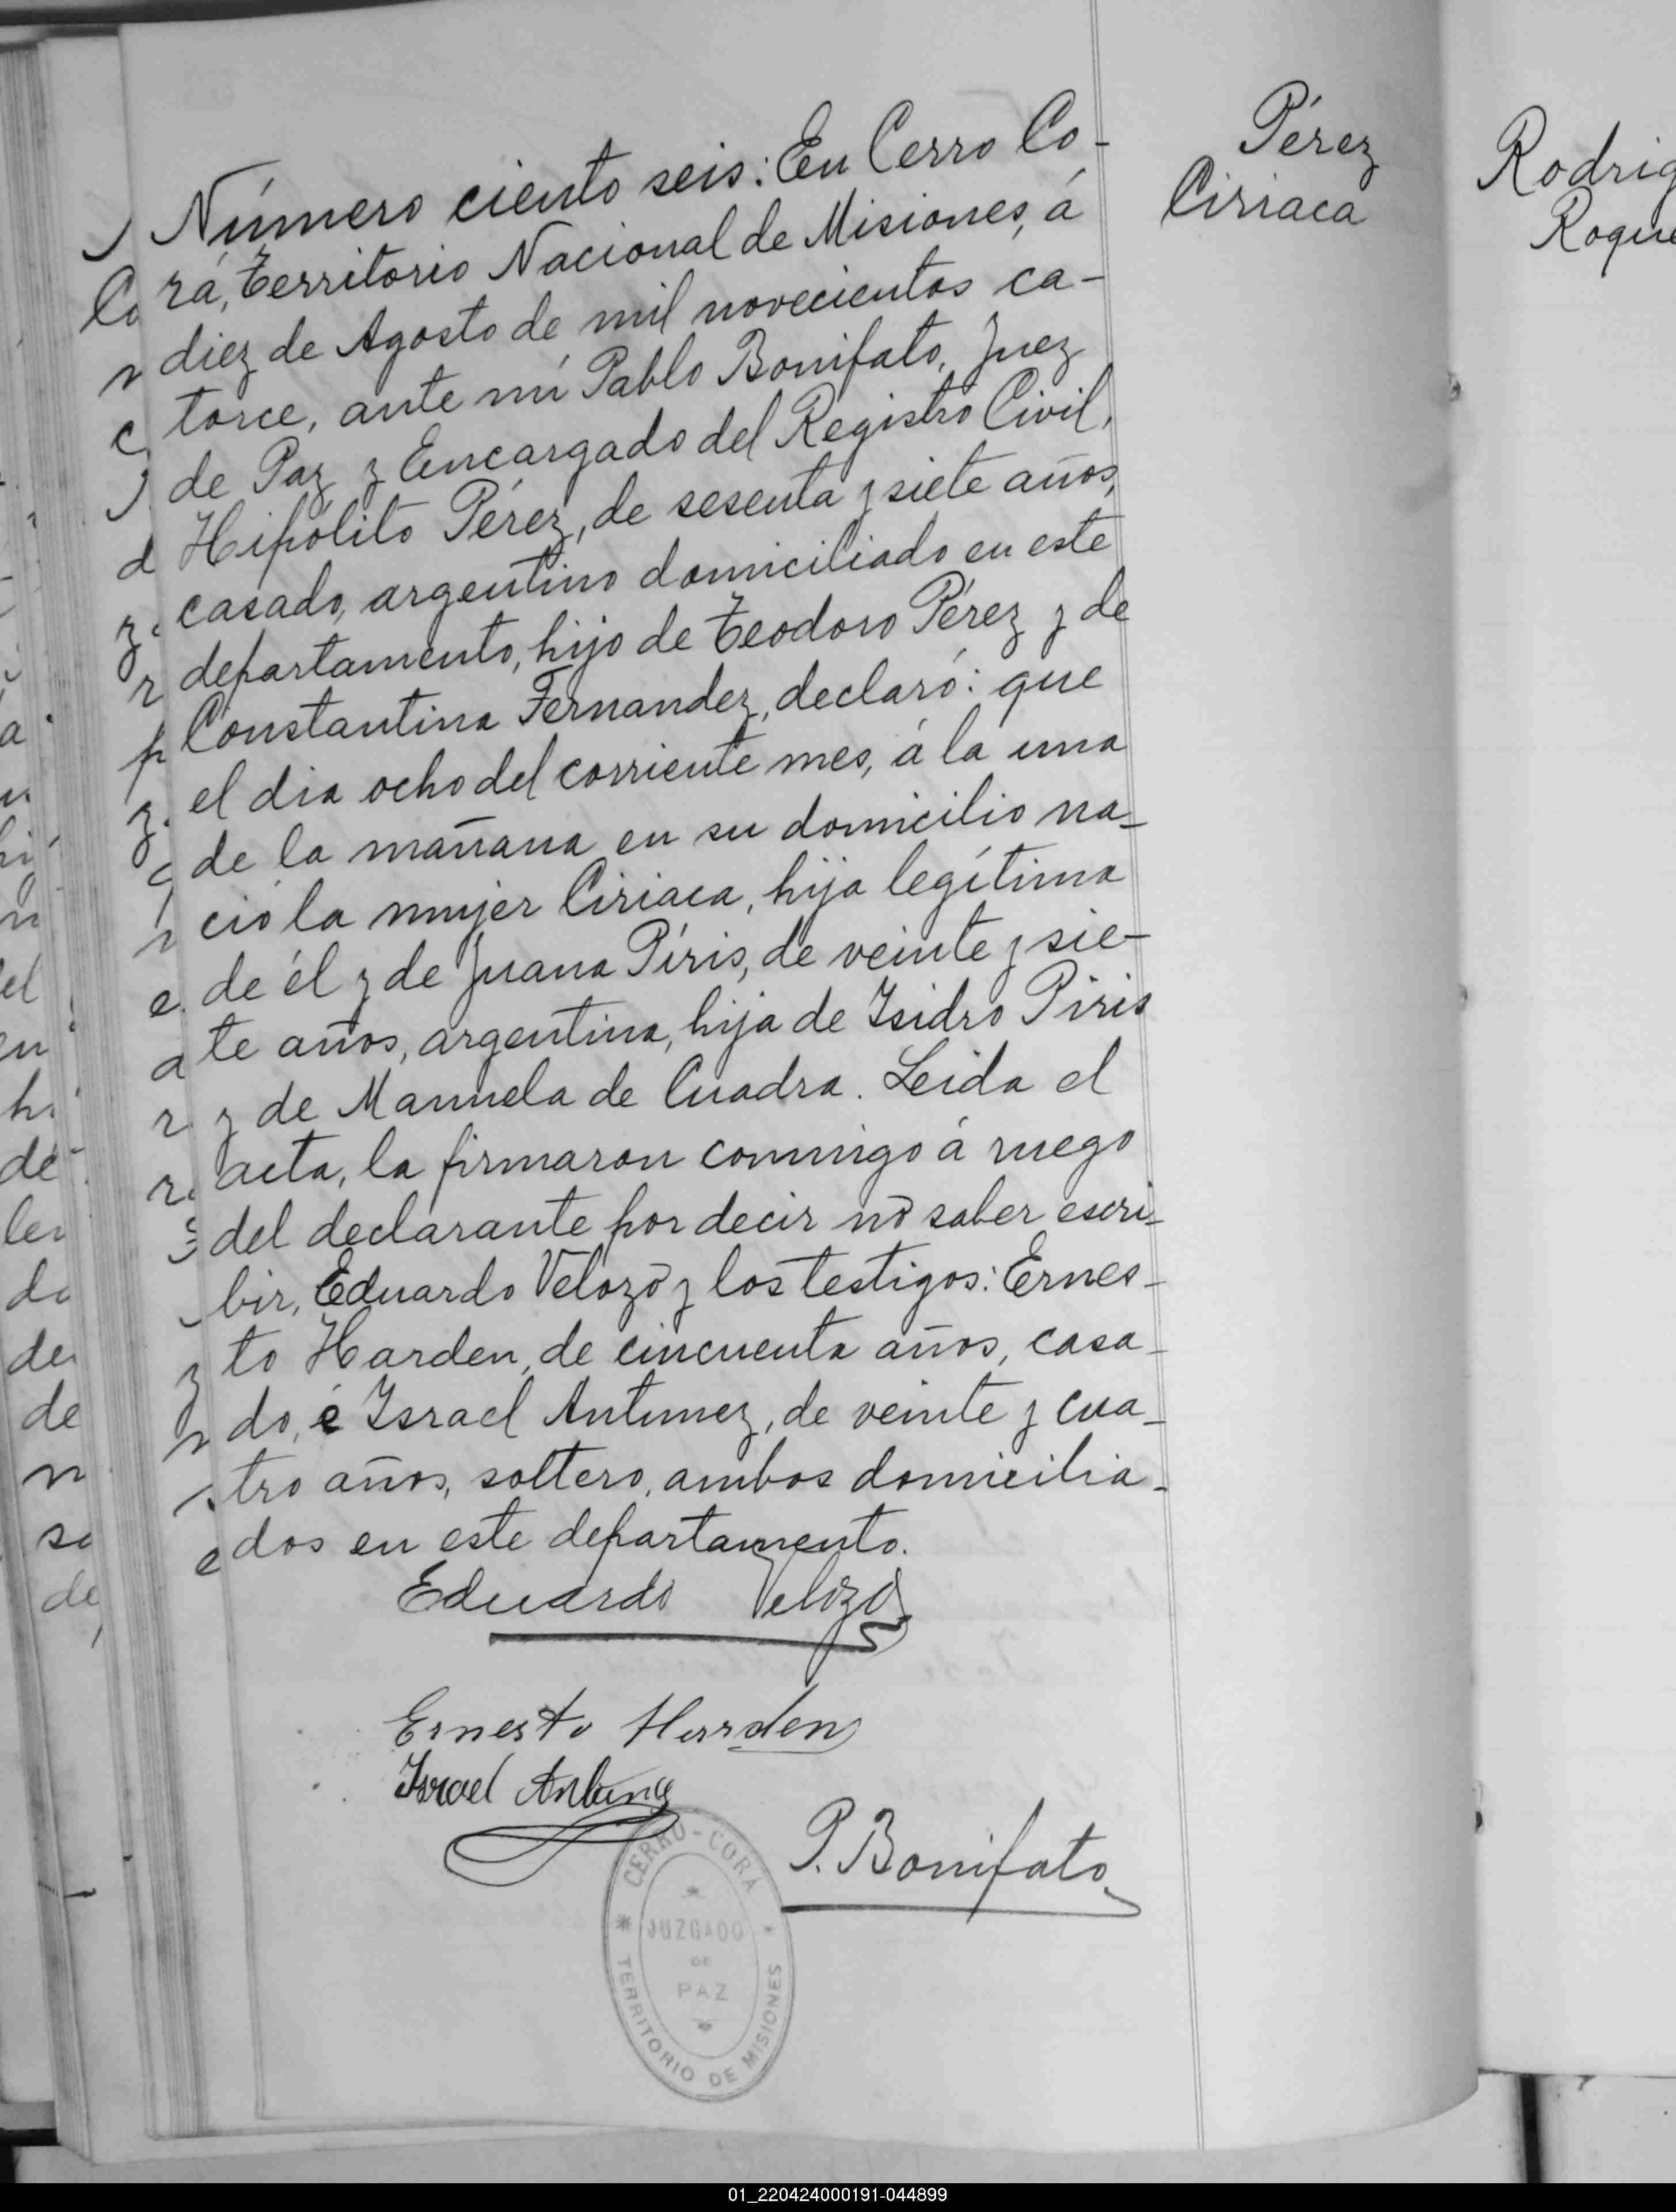 Pérez
Ciriaca
Número ciento seis: En Cerro Co-
rá, Territorio Nacional de Misiones, á
diez de Agosto de mil novecientos ca-
torce, ante mí Pablo Bonifato, Juez
de Paz y Encargado del Registro Civil,
Hipólito Pérez, de sesenta y siete años,
casado, argentino domiciliado en este
departamento, hijo de Teodoro Pérez y de
Constantina Fernandez, declaró: que
el dia ocho del corriente mes, á la una
de la mañana en su domicilio na-
ció la mujer Ciriaca, hija legítima
de él y de Juana Píris, de veinte y sie-
te años, argentina, hija de Isidro Piris
y de Manuela de Cuadra. Leida el
acta, la firmaron conmigo á ruego
del declarante por decir nó saber escri-
bir, Eduardo Velozo y los testigos: Ernes-
to Harden, de cincuenta años, casa-
do, é Israel Antunez, de veinte y cua-
tro años, soltero, ambos domicilia-
dos en este departamento.
Eduardo Velozo
Ernesto Harden
Israel Antunez
P. Bonifato
CERRO-CORA
JUZGADO
DE
PAZ
TERRITORIO DE MISIONES
Rodrig
Roque
01_220424000191-044899